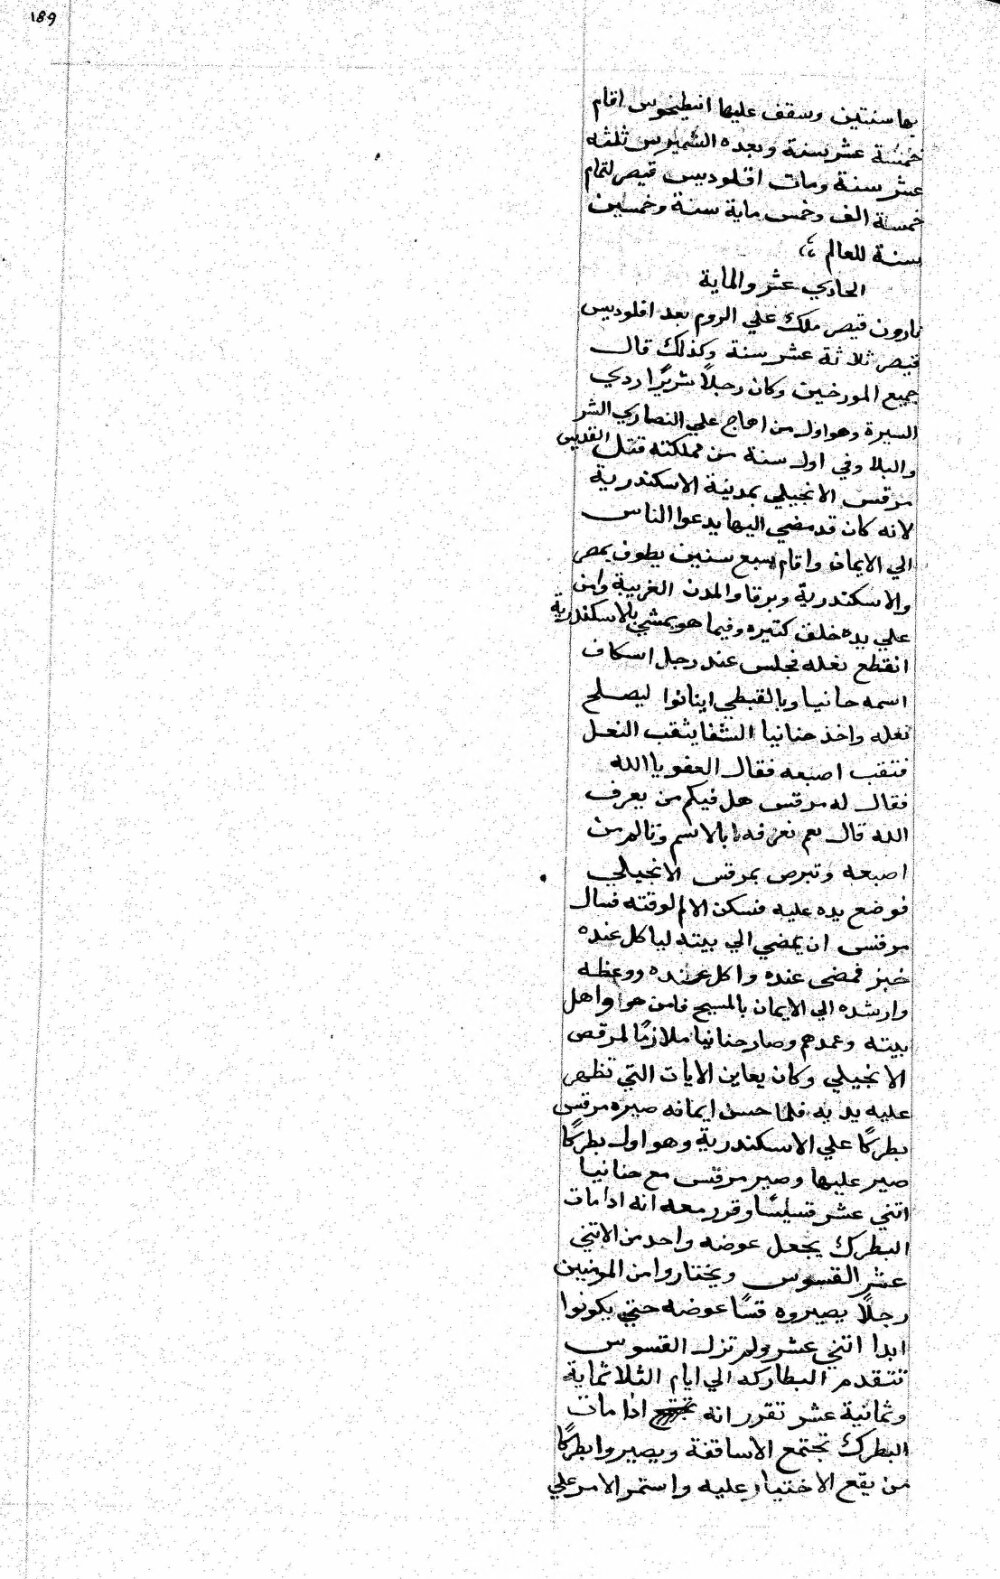 ١٨٩
بها سنتين وسقف عليها انيطيخوس اقام
خمسة عشر سنة وبعده الشميرس ثلثه
عشر سنة ومات اقلوديس قيصر لتمام
خمسة الف وخمس ماية سنة وخمسين
سنة للعالم
الحادي عشر والماية
نارون قيصر ملك علي الروم بعد اقلوديس
قيصر ثلاثة عشر سنة وكذلك قال
جميع المورخين وكان رجلاً شريرًا ردي
السيرة وهو اول من اهاج علي النصاري الشر
والبلا وفي اول سنة من مملكته قتل القديس
مرقس الانجيلي بمدينة الاسكندرية
لانه كان قد مضي اليها يدعوا الناس
الي الايمان واقام سبع سنين يطوف بمصر
والاسكندرية وبرقا والمدن الغربية وامن
علي يده خلق كتيره وفيما هو يمشي بالاسكندرية
انقطع نعله فجلس عند رجل اسكاف
اسمه حانيا وبالقبطي اينانوا ليصلح
نعله واخذ حنانيا الشفا يثقب النعل
فتقب اصبعه فقال العفو يا الله
فقال له مرقس هل فيكم من يعرف
الله قال نعم نعرفه بالاسم وتالم من
اصبعه وتبرص بمرقس الانجيلي
فوضع يده عليه فسكن الالم لوقته فسال
مرقس ان يمضي الي بيته لياكل عنده
خبز فمضي عنده واكل عنده ووعظه
وارشده الي الايمان بالمسيح فامن هو واهل
بيته وعمدهم وصار حنانيا ملازمًا لمرقص
الانجيلي وكان يعاين الايات التي تظهر
عليه يديه فلما حسن ايمانه صيره مرقس
بطركًا علي الاسكندرية وهو اول بطركًا
صير عليها وصير مرقس مع حنانيا
اتني عشر قسيسًا وقرر معه انه ادا مات
البطرك يجعل عوضه واحد من الاتني
عشر القسوس ويختاروا من المومنين
رجلاً يصيروه قسًا عوضه حتي يكونوا
ابدا اتني عشر ولم تزل القسوس
تتقدم البطاركه الي ايام الثلاثماية
وثمانية عشر تقرر انه اذا مات
البطرك تجتمع الاساقفة ويصيروا بطركًا
من يقع الاختيار عليه واستمر الامر علي